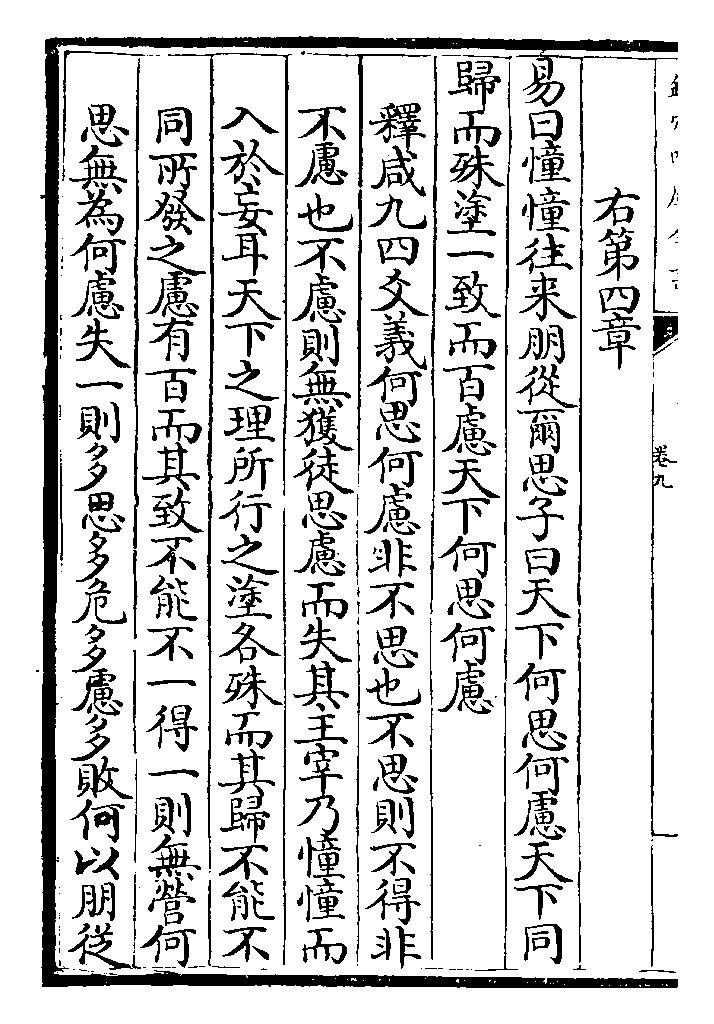 卷九
右第四章
易曰憧憧往来朋從爾思子曰天下何思何慮天下同
歸而殊塗一致而百慮天下何思何慮
釋咸九四爻義何思何慮非不思也不思則不得非
不慮也不慮則無獲徒思慮而失其主宰乃憧憧而
入於妄耳天下之理所行之塗各殊而其歸不能不
同所發之慮有百而其致不能不一得一則無營何
思無為何慮失一則多思多危多慮多敗何以朋從